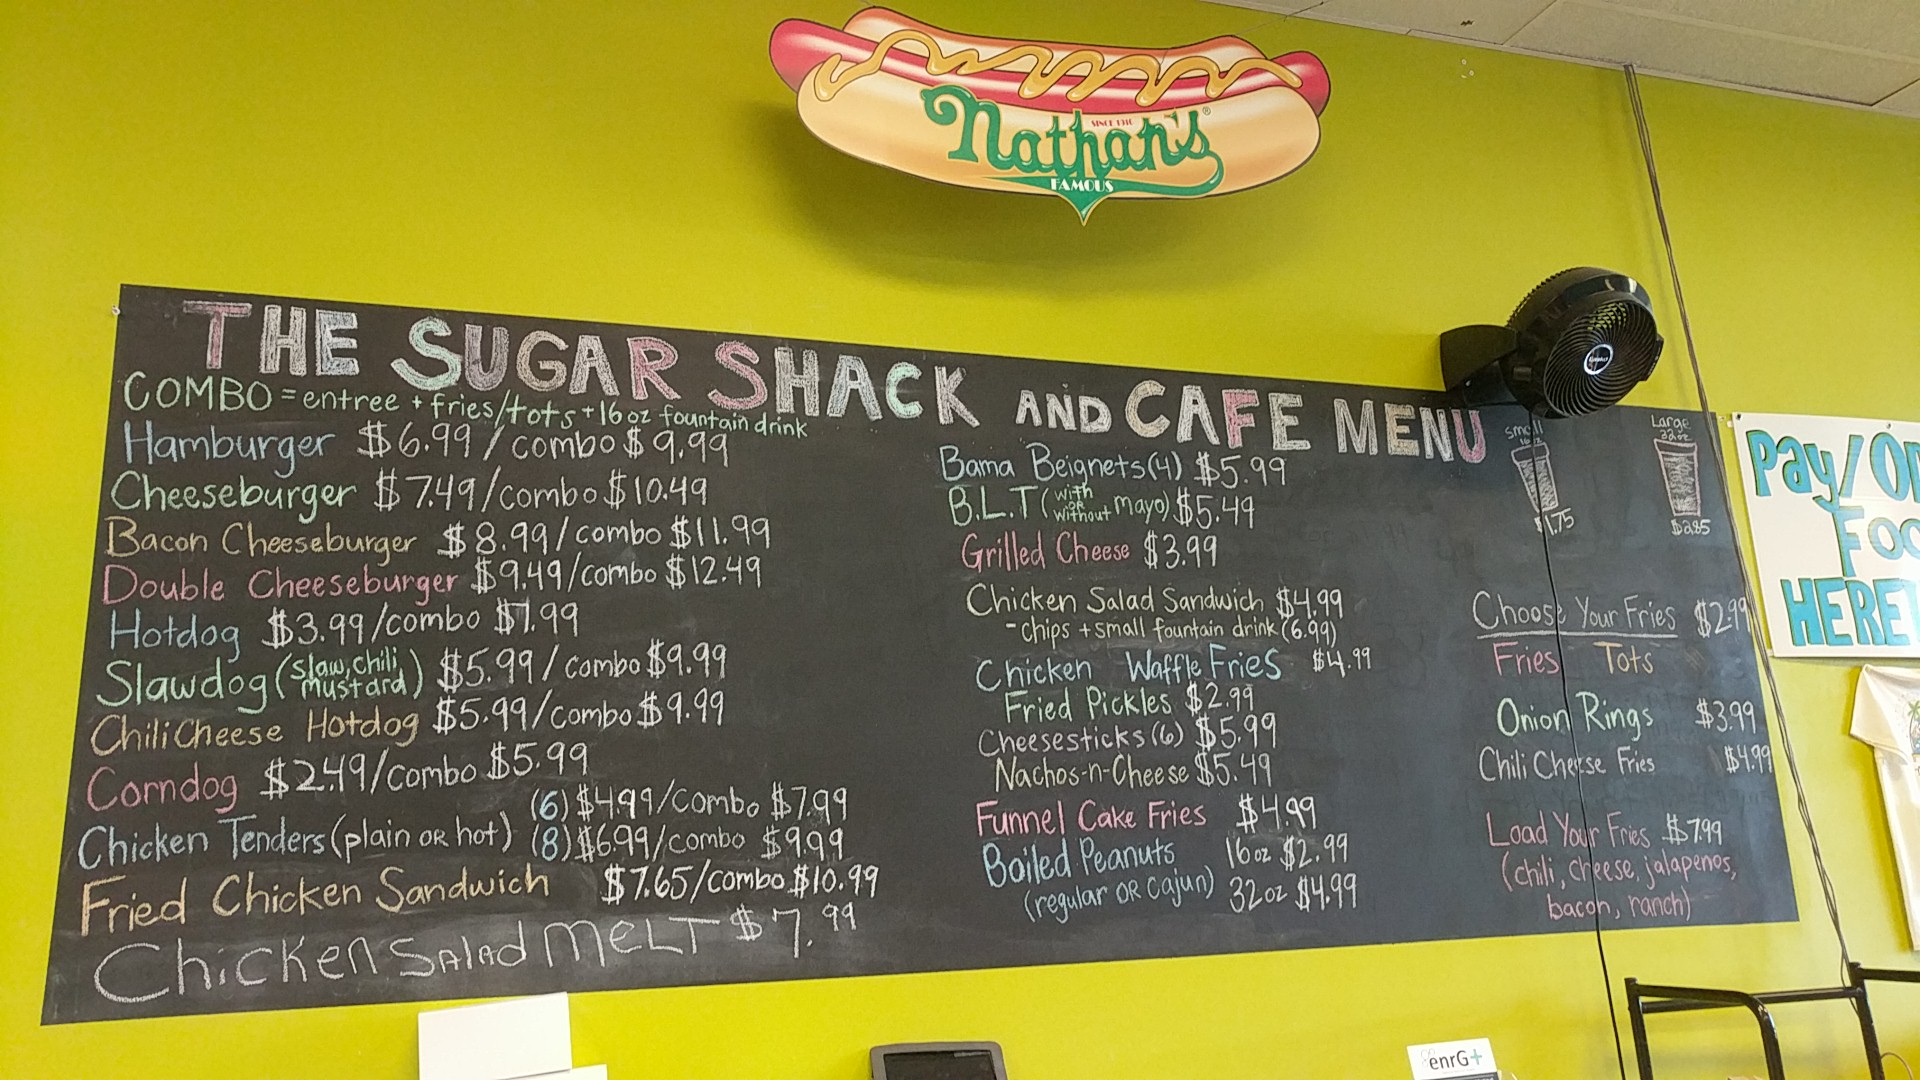 Nathan's®
SINCE 1916
FAMOUS
THE SUGAR SHACK AND CAFE MENU
COMBO = entree + fries/tots + 16 oz fountain drink
Hamburger $6.99/combo $9.99
Cheeseburger $7.49/combo $10.49
Bacon Cheeseburger $8.99/combo $11.99
Double Cheeseburger $9.49/combo $12.49
Hotdog $3.99/combo $7.99
Slawdog (slaw, chili, mustard) $5.99/combo $9.99
Chili Cheese Hotdog $5.99/combo $9.99
Corndog $2.49/combo $5.99
Chicken Tenders (plain or hot) (6) $4.99/combo $7.99
(8) $6.99/combo $9.99
Fried Chicken Sandwich $7.65/combo $10.99
Chicken Salad MELT $7.99
Bama Beignets (4) $5.99
B.L.T (with or without mayo) $5.49
Grilled Cheese $3.99
Chicken Salad Sandwich $4.99
- chips + small fountain drink (6.99)
Chicken Waffle Fries $4.99
Fried Pickles $2.99
Cheesesticks (6) $5.99
Nachos-n-Cheese $5.49
Funnel Cake Fries $4.99
Boiled Peanuts 16 oz $2.99
(regular OR cajun) 32 oz $4.99
small
16 oz
$1.75
Large
32 oz
$2.85
Choose Your Fries $2.99
Fries Tots
Onion Rings $3.99
Chili Cheese Fries $4.99
Load Your Fries $7.99
(chili, cheese, jalapenos,
bacon, ranch)
Pay/
HERE
enrG+